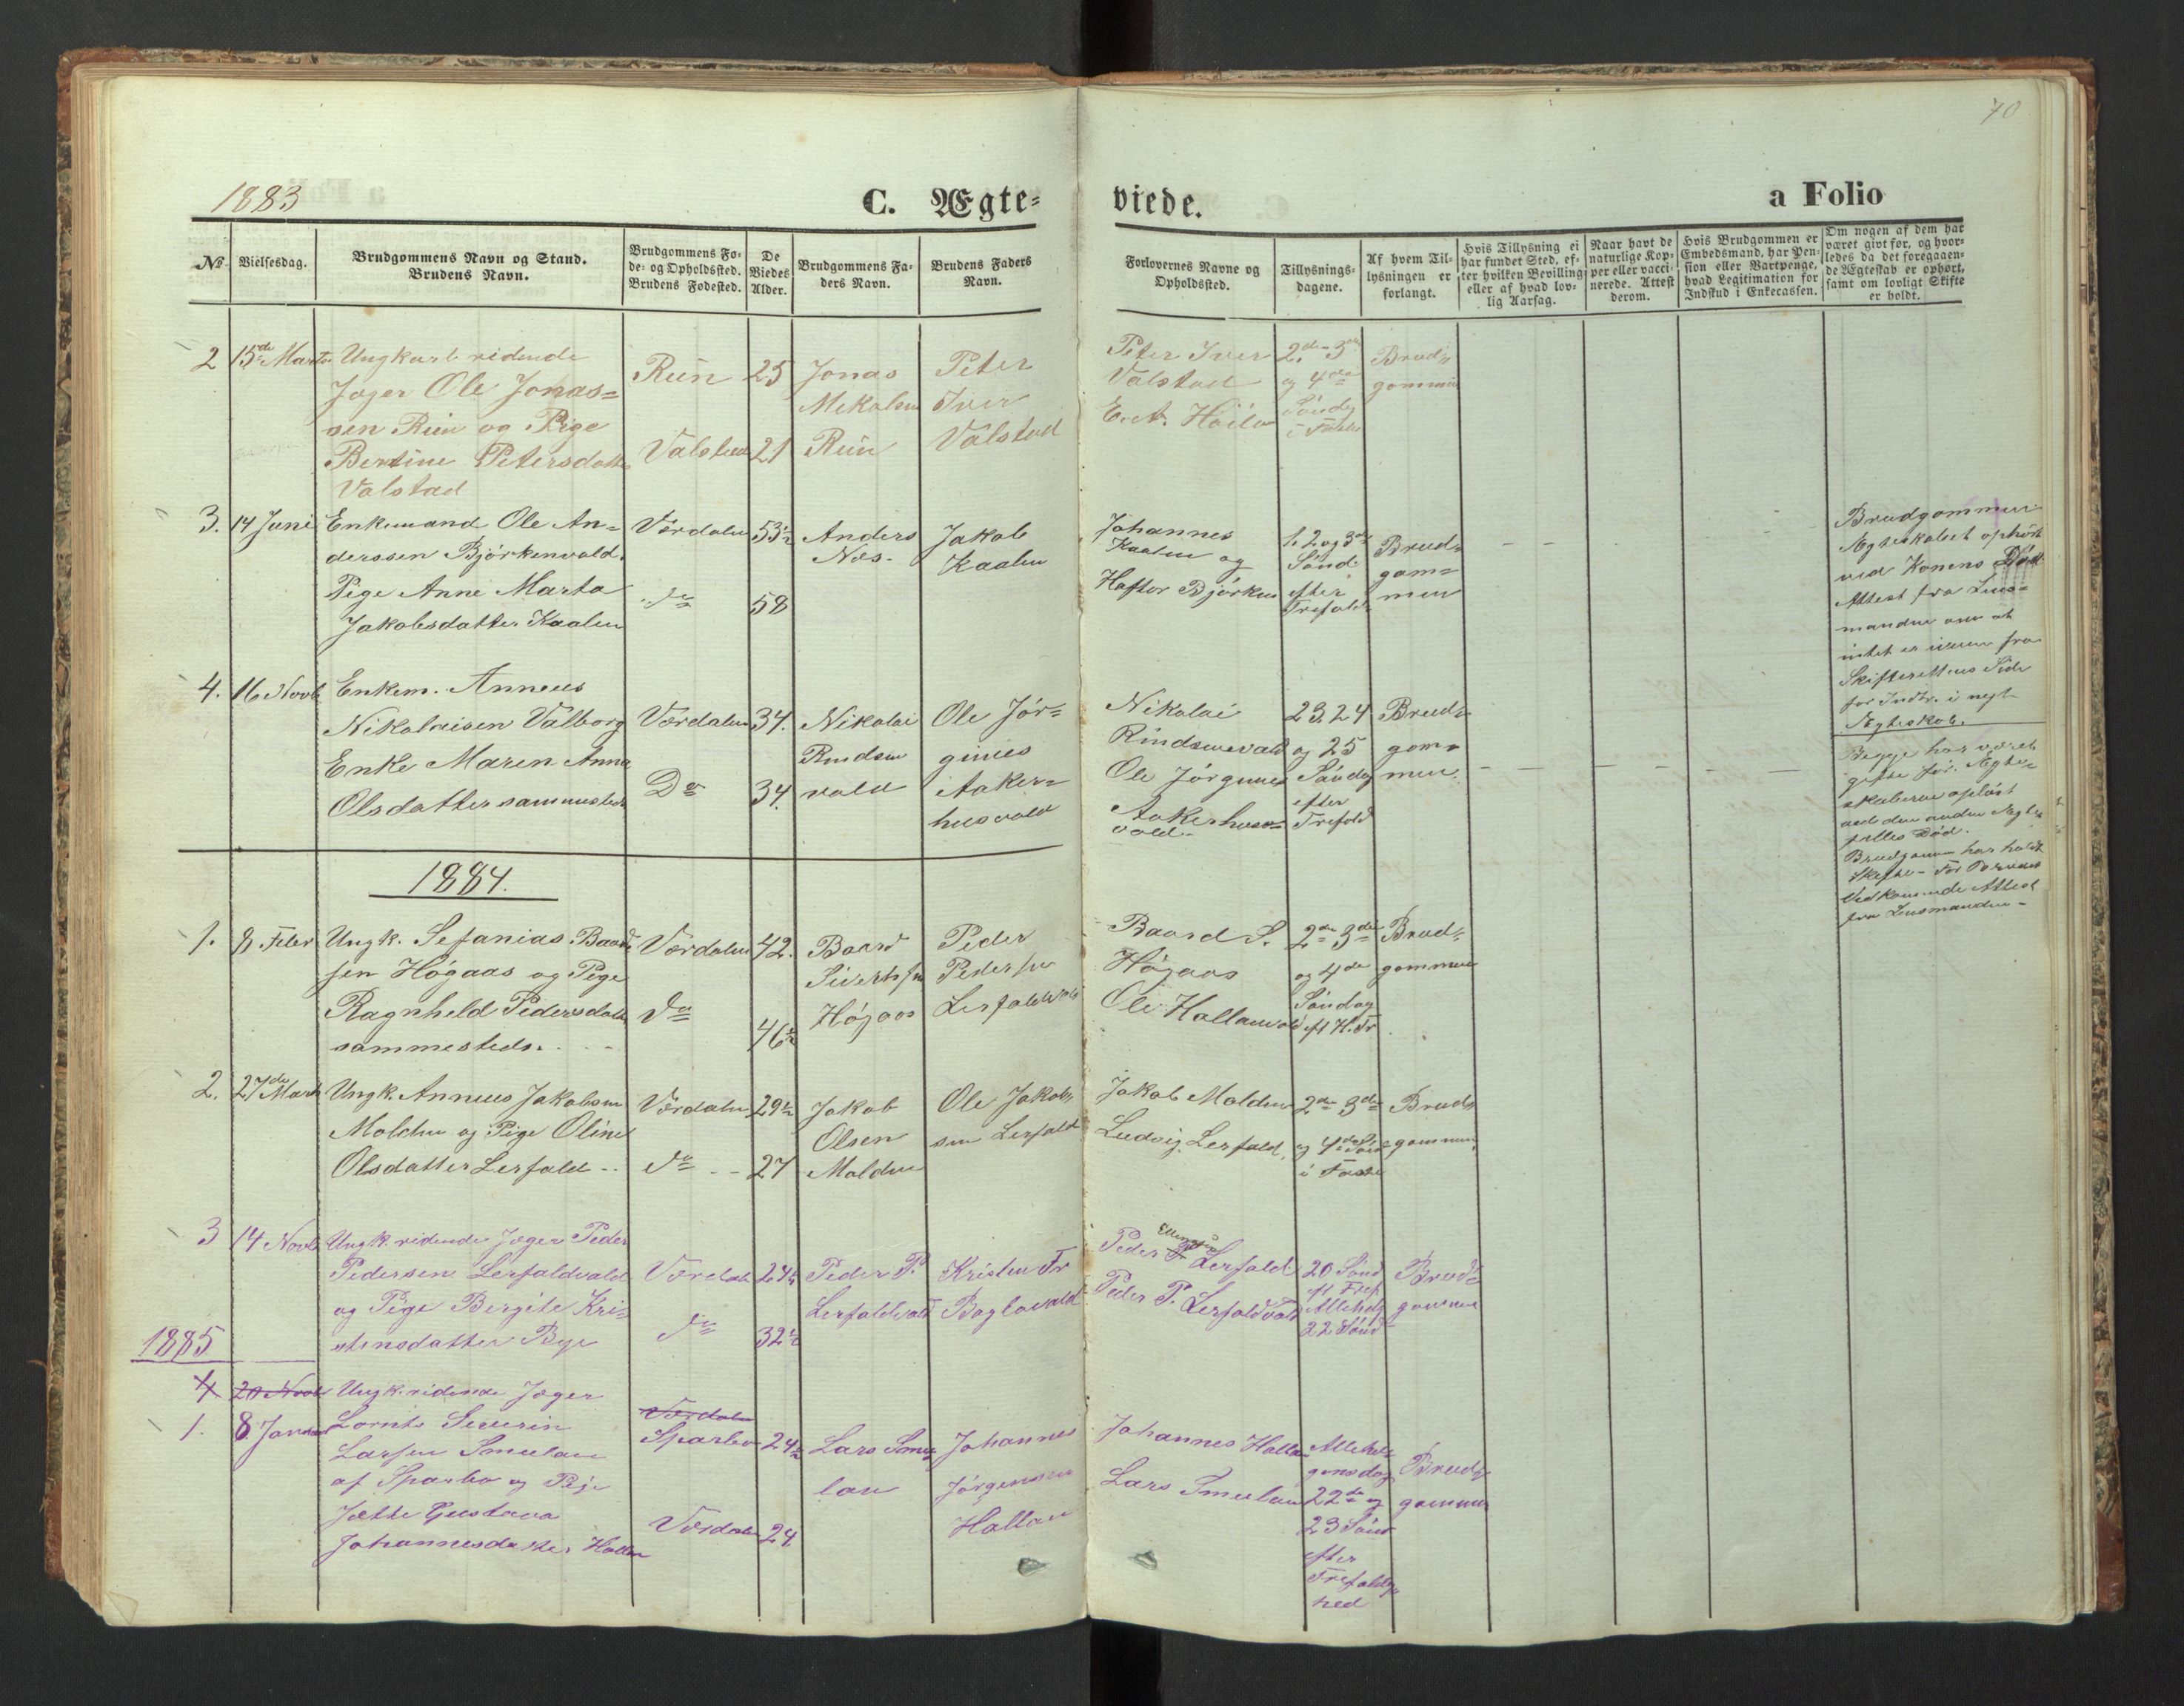 70
1883
C. Ægte=
viede.
a Folio
No.
Vielsesdag.
Brudgommens Navn og Stand.
Brudens Navn.
Brudgommens Fø-
de- og Opholdssted.
Brudens Fødested.
De
Viedes
Alder.
Brudgommens Fa-
ders Navn.
Brudens Faders
Navn.
Forlovernes Navne og
Opholdssted.
Tillysnings-
dagene.
Af hvem Til-
lysningen er
forlangt.
Hvis Tillysning ei
har fundet Sted, ef-
ter hvilken Bevilling
eller af hvad lov-
lig Aarsag.
Naar havt de
naturlige Kop-
per eller vacci-
nerede. Attest
derom.
Hvis Brudgommen er
Embedsmand, har Pen-
sion eller Vartpenge,
hvad Legitimation for
Indskud i Enkecassen.
Om nogen af dem har
været givt før, og hvor-
ledes da det foregaaen-
de Ægteskab er ophørt,
samt om lovligt Skifte
er holdt.
2
15de Marts
Ungkarl ridende
Jæger Ole Jonas=
sen Rein og Pige
Bentine Petersdatter
Valstad
Rein
Valstad
25
21
Jonas
Mekalsen
Rein
Peter
Iver
Valstad
Peter Iver
Valstad
E. A.
2de 3die
og 4de
Søndg
i Faste
Brud=
gommen
3.
14 Juni
Enkemand Ole An=
derssen Bjørkenvald.
Pige Anne Marta
Jakobsdatter Kaalen
Værdalen
do
53½
58
Anders
Næs.
Jakob
Kaalen
Johannes
Kaalen og
Haftor Bjørken
1. 2 og 3die
Sønd.
efter
Trefold.
Brud=
gom=
men
Brudgommens
Ægteskabet ophørt
ved Konens Død
Attest fra Lens=
manden om at
intet er iveien fra
Skifterettens Side
for Indtr. i nyt
Ægteskab.
4.
16 Novb
Enkem. Anneus
Nikolaisen Valborg
Enke Maren Anna
Olsdatter sammesteds
Værdalen
Do
34.
34.
Nikolai
Rindsen
vald
Ole Jør=
ginus
Aaker=
husvald
Nikolai
Rindsenvald
Ole Jørginus
Aakerhus=
vald.
23, 24
og 25
Søndg
efter
Trefold
Brud=
gom=
men.
Begge har været
gifte før. Ægte=
skaberne opløst
ved den anden Ægte
fælles Død.
Brudgommen har holdt
Skifte - For Brudens
Vedkommende Attest
fra Lensmanden -
1884.
1.
8 Febr
Ungk. Sefanias Baard
sen Høgaas og Pige
Ragnheld Pedersdatter
sammesteds.
Værdalen
do
42.
46½
Baard
Sivertsen
Høgaas
Peder
Pedersen
Lerfaldvald
Baard S.
Høgaas
Ole Hallanvald
2den 3die
og 4de
Søndag
eft H. Tr
Brud=
gommen
2.
27de Marts
Ungk. Anneus Jakobsen
Molden og Pige Oline
Olsdatter Lerfald
Værdalen
do
29½
27
Jakob
Olsen
Molden
Ole Jakob=
sen Lerfald
Jakob Molden
Ludvig Lerfald.
2den 3die
og 4de Sønd
i Faste
Brud=
gommen.
3
14 Novb
Ungk. ridende Jæger Peder
Pedersen Lerfaldvald
og Pige Bergite Kri=
stensdatter Bye
Værdal
do
24½
32½
Peder P.
Lerfaldvald
Kristen Fr
Baglovald
Ellingsen
Peder P. Lerfald
Peder P. Lerfaldvald
20 Sønd
eft Tref
Allehelg
22 Sønd
Brud=
gommen
1885
4
20 Novb
1.
8. Januar
Ungk. ridende Jæger
Lornts Severin
Larsen Smeulan
af Sparbo og Pige
Jette Gustava
Johannesdatter Hallan
Værdalen
Sparbo
Værdalen
24½
24
Lars Smeu
lan
Johannes
Jørgensen
Hallan
Johannes Hallan
Lars Smeulan
Allehel=
gensdag
22de og
23 Sønd
efter
Trefoldig=
hed
Brud=
gommen